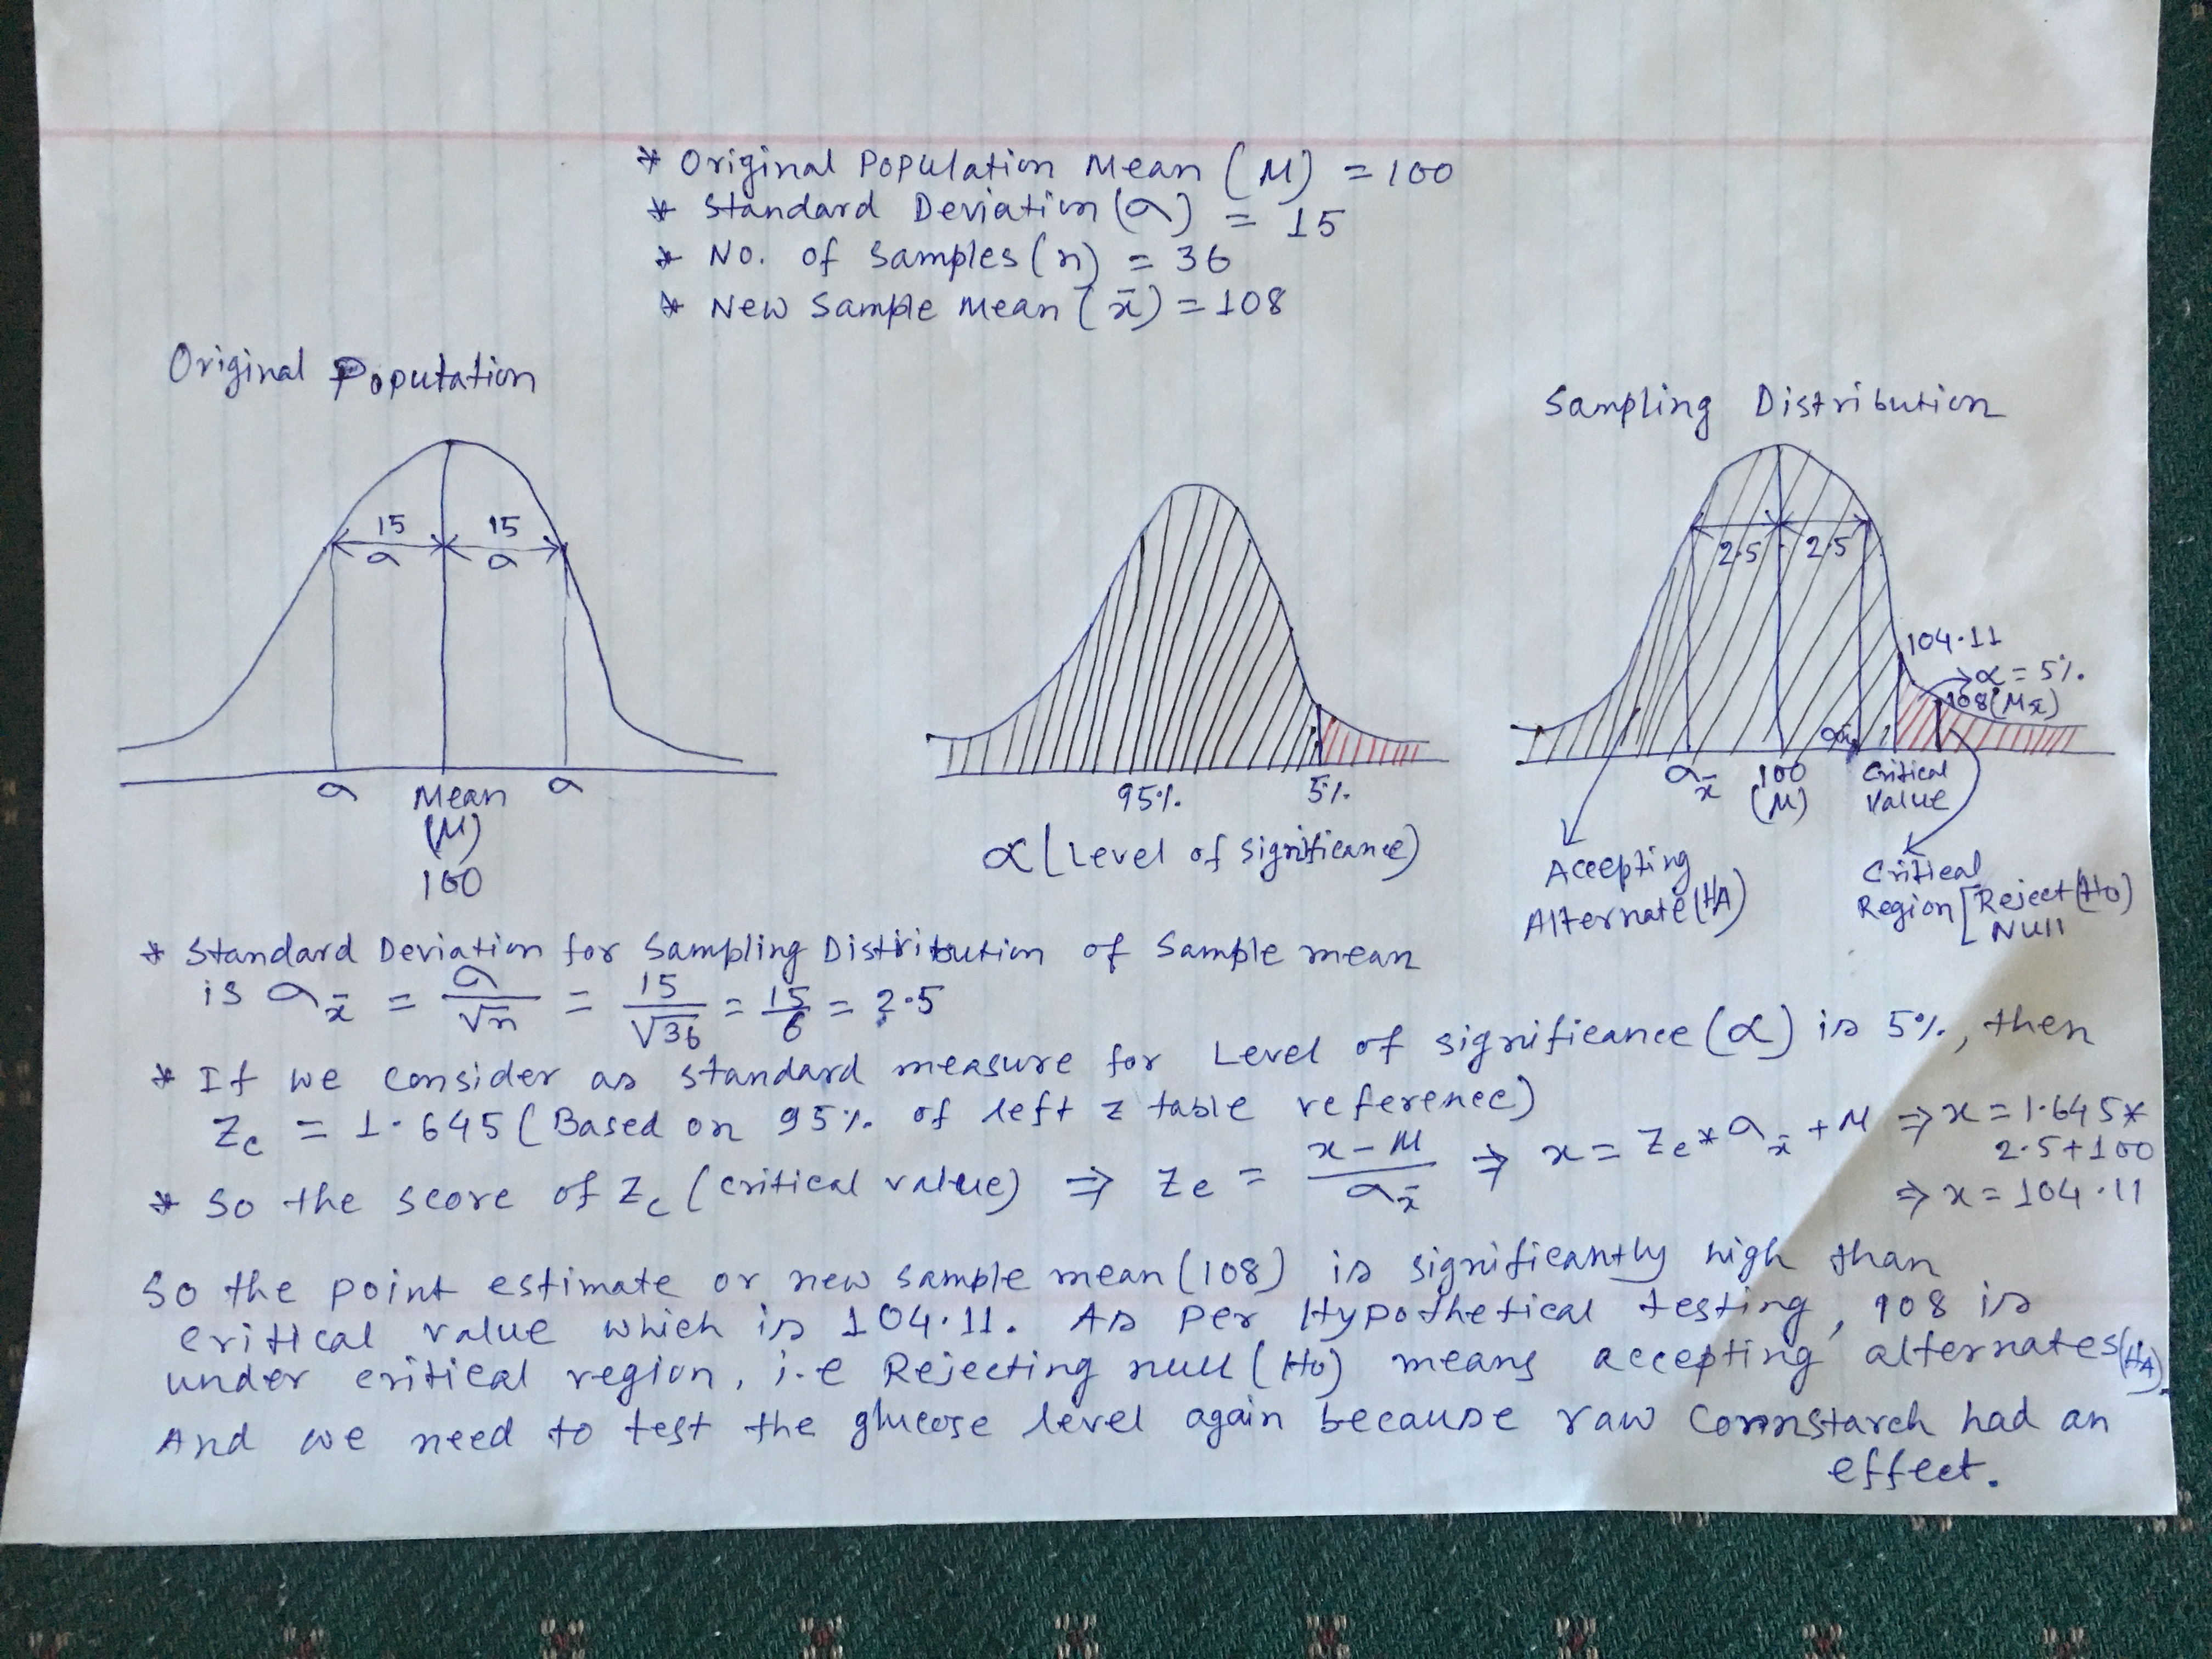 * Original Population Mean (M) = 100
* Standard Deviation (σ) = 15
* No. of Samples (n) = 36
* New Sample Mean (x̄) = 108
Original Population
15 15
σ σ
σ σ
Mean
(M)
100
95% 5%
α (Level of significance)
Sampling Distribution
104.11
α = 5%
108 (Mx̄)
2.5 2.5
σx̄ 100 σx̄ Critical
(M) Value
Accepting
Alternate (HA)
Critical
Region [Reject (H0)
NULL
* Standard Deviation for Sampling Distribution of Sample mean
is σx̄ = σ/√n = 15/√36 = 15/6 = 2.5
* If we consider as standard measure for Level of significance (α) is 5%, then
Zc = 1.645 (Based on 95% of left z table reference)
* So the score of Zc (critical value) ⇒ Zc = x - M / σx̄ ⇒ x = Zc * σx̄ + M ⇒ x = 1.645 *
2.5 + 100
⇒ x = 104.11
So the point estimate or new sample mean (108) is significantly high than
critical value which is 104.11. As per Hypothetical testing, 108 is
under critical region, i.e Rejecting null (H0) means accepting alternates (HA).
And we need to test the glucose level again because raw cornstarch had an
effect.